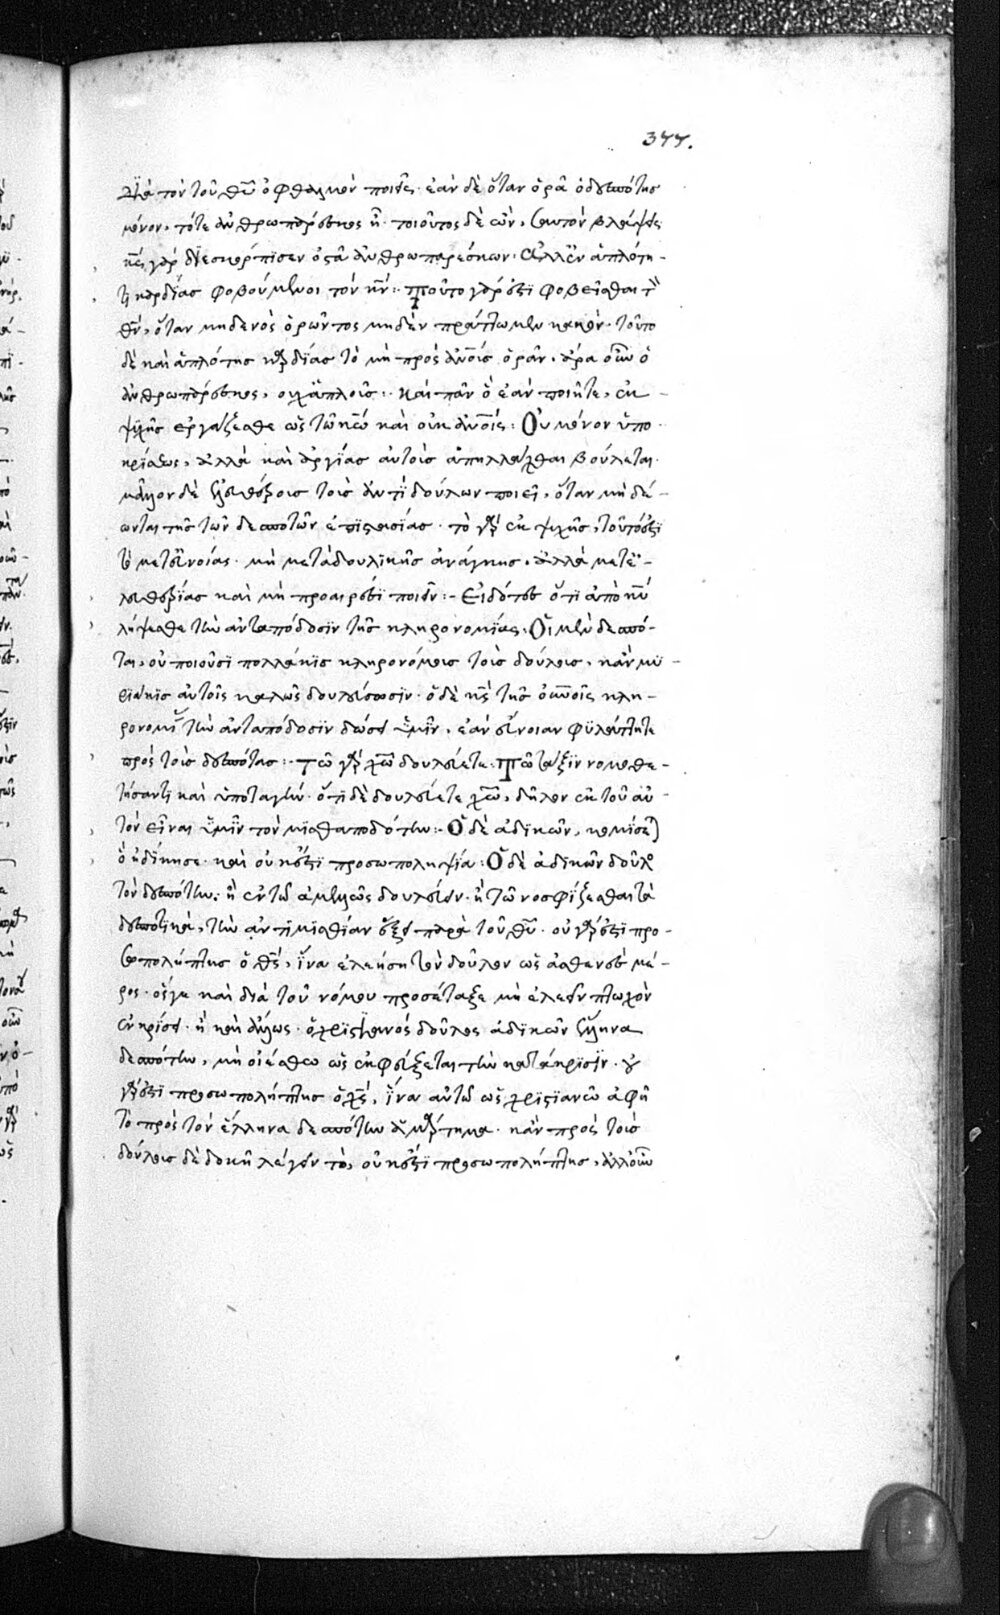 377.
Διὰ τὸν τοῦ θῦ ὀφθαλμὸν ποιεῖς· ἐὰν δὲ ὅταν ὁρᾶ ὁ δεσπότης
μόνον, τότε ἀνθρωπάρεσκος εἶ· τοιοῦτος δὲ ὢν, σαυτὸν βλάψεις
κς γὰρ διεσκόρπισεν ὀστᾶ ἀνθρωπαρέσκων· Ἀλλ' ἐν ἁπλότη-
τι καρδίας φοβούμενοι τὸν κν:· Τοῦτο γάρ ἐστι φοβεῖσθαι τὸν
θν, ὅταν μηδενὸς ὁρῶντος μηδὲν πράττωμεν κακὸν· τοῦτο
δὲ καὶ ἁπλότης καρδίας τὸ μὴ πρὸς ἀνοις ὁρᾶν· ἄρα οὖν ὁ
ἀνθρωπάρεσκος, οὐχ ἁπλοῦς:· Καὶ πᾶν ὃ ἐὰν ποιῆτε, ἐκ
ψυχῆς ἐργάζεσθε ὡς τῶ κω καὶ οὐκ ἀνοις: Οὐ μόνον ὑπο
κρίσεως, ἀλλὰ καὶ ἀργίας αὐτοὺς ἀπηλλάχθαι βούλεται·
μᾶλλον δὲ ἐλευθέρους τοὺς ἀντὶ δούλων ποιεῖ, ὅταν μὴ δέ-
ωνται τῆς τῶν δεσποτῶν ἐπιστασίας· τὸ γὰρ ἐκ ψυχῆς, τοῦτό ἐστι
τὸ μετ' εὐνοίας· μὴ μετὰ δουλικῆς ἀνάγκης, ἀλλὰ μετ' ἐ-
λευθερίας καὶ μὴ προαιρέσει ποιεῖν:- Εἰδότες ὅτι ἀπὸ κυ
λήψεσθε τὴν ἀνταπόδοσιν τῆς κληρονομίας· Οἱ μὲν δεσπό-
ται, οὐ ποιοῦσι πολλάκις κληρονόμους τοὺς δούλους, κἂν μυ-
ριάκις αὐτοῖς καλῶς δουλεύσωσιν· ὁ δὲ κς τῆς οὐνοις κλη-
ρονομίας τὴν ἀνταπόδοσιν δώσει ὑμῖν, ἐὰν εὔνοιαν φυλάττητε
πρὸς τοὺς δεσπότας:· Τῶ γὰρ χω δουλεύετε· Τῶ τάξιν νομοθε-
τήσαντι καὶ ὑποταγήν· ὅτι δὲ δουλεύετε χω, δῆλον ἐκ τοῦ αὐ
τὸν εἶναι ὑμῖν τὸν μισθαποδότην:- Ὁ δὲ ἀδικῶν, κομιεῖται
ὃ ἠδίκησε· καὶ οὐκ ἔστι προσωποληψία: Ὁ δὲ ἀδικῶν δοῦλος
τὸν δεσπότην, ἢ ἐν τῶ ἀμελῶς δουλεύειν· ἢ τῶ νοσφίζεσθαι τὰ
δεσποτικά, τὴν ἀντιμισθίαν ἕξει παρὰ τοῦ θυ· οὐ γάρ ἐστι προ-
σωπολήπτης ὁ θς, ἵνα ἐλεήση τὸν δοῦλον ὡς ἀσθενὲς μέ-
ρος· ὅς γε καὶ διὰ τοῦ νόμου προσέταξε μὴ ἐλεεῖν πτωχὸν
ἐν κρίσει· ἢ καὶ ἄλλως· ὁ χριστιανὸς δοῦλος ἀδικῶν ἕλληνα
δεσπότην, μὴ οἰέσθω ὡς ἐκφεύξεται τὴν κατάκρισιν· οὐ
γάρ ἐστι προσωπολήπτης ὁ χς, ἵνα αὐτῶ ὡς χριστιανῶ ἀφῆ
τὸ πρὸς τὸν ἕλληνα δεσπότην ἁμάρτημα· κἂν πρὸς τοὺς
δούλους δὲ δοκῆ λέγειν τὸ, οὐκ ἔστι προσωπολήπτης, ἀλλ' οὖν